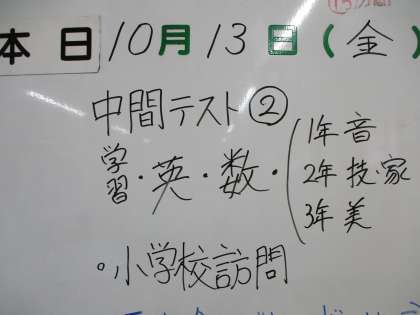 本日 10月13日(金)
中間テスト②
学習・英・数・(1年 音
2年 技・家
3年 美
○小学校訪問